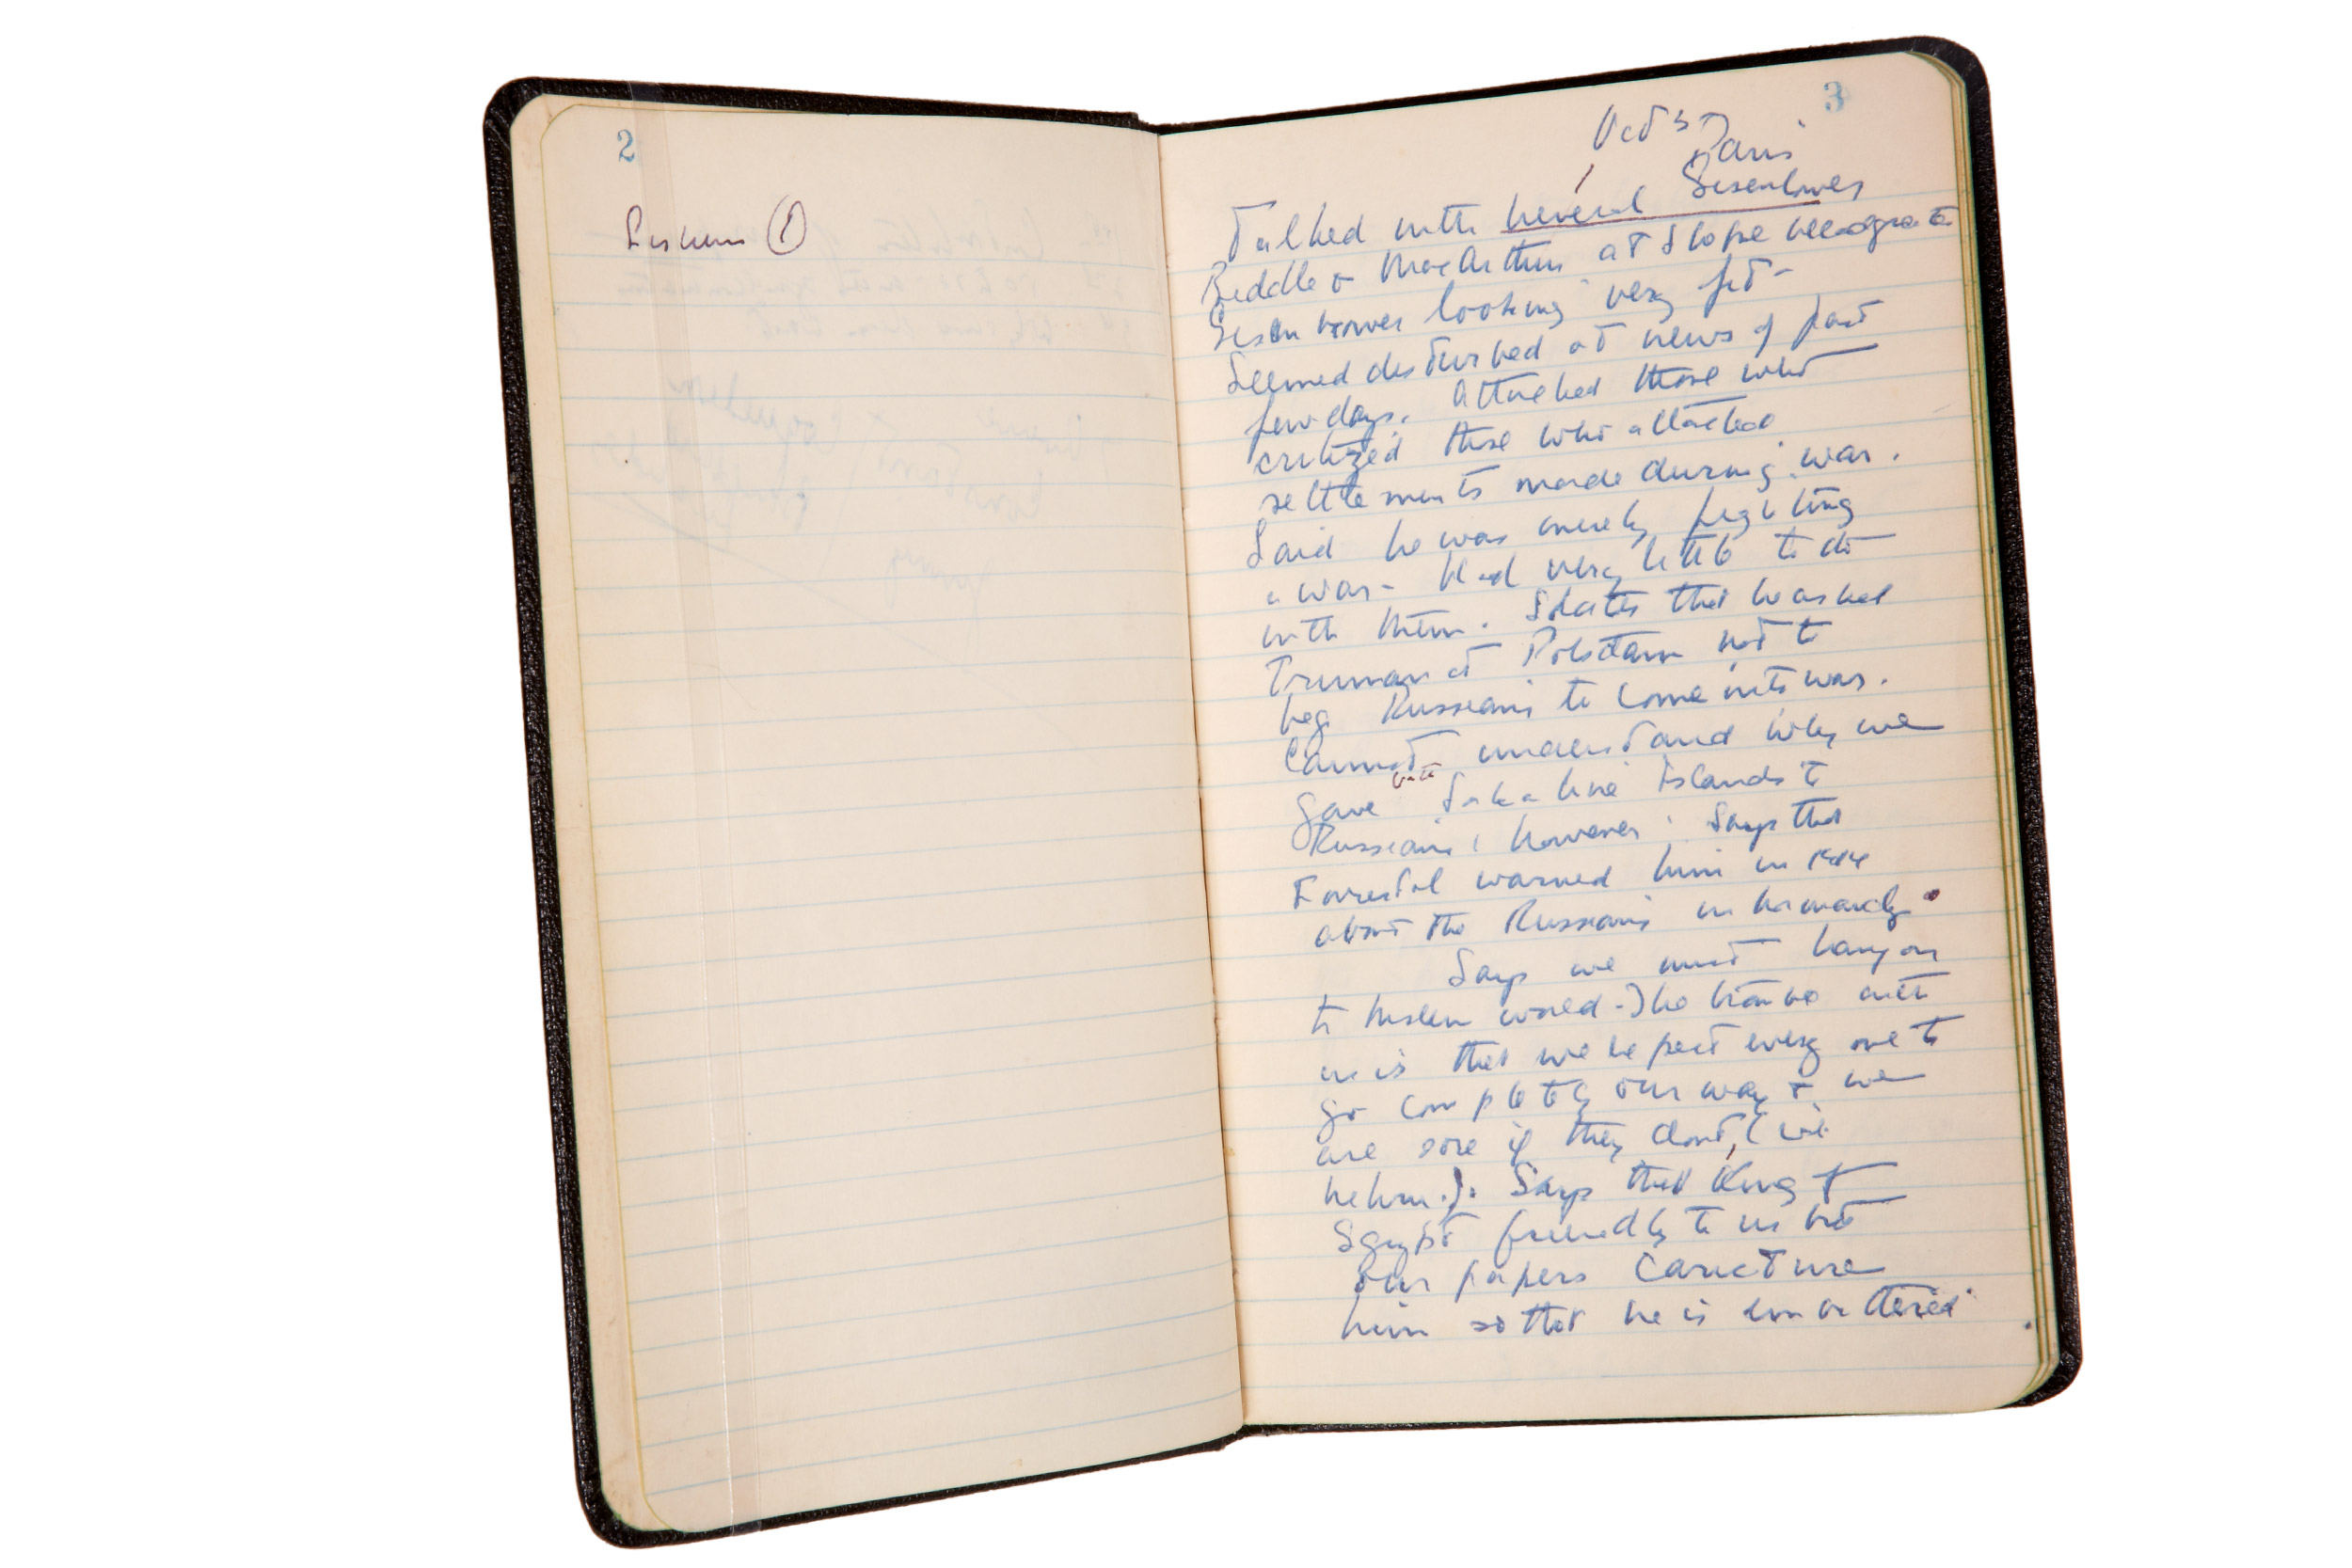 2
3
Oct 3
Paris
Talked with General Eisenhower
Biddle & MacArthur at Shape
Eisenhower looking very fit -
Seemed disturbed at news of past
few days. Attacked those who
critized those who attacked
settlements made during war.
Said he was merely fighting
a war - Had very little to do
with them. States that he asked
Truman at Potsdam not to
beg Russians to come into war.
Cannot understand why we
gave Islands to
Russians, however. Says that
Forrestal warned him in 1944
about the Russians in
Says we must hang on
to Moslem world - The trouble with
us is that we expect every one to
go completely our way & we
are sore if they dont, (i.e.
Nehru). Says that King of
Egypt friendly to us but
our papers caricture
him so that he is embittered